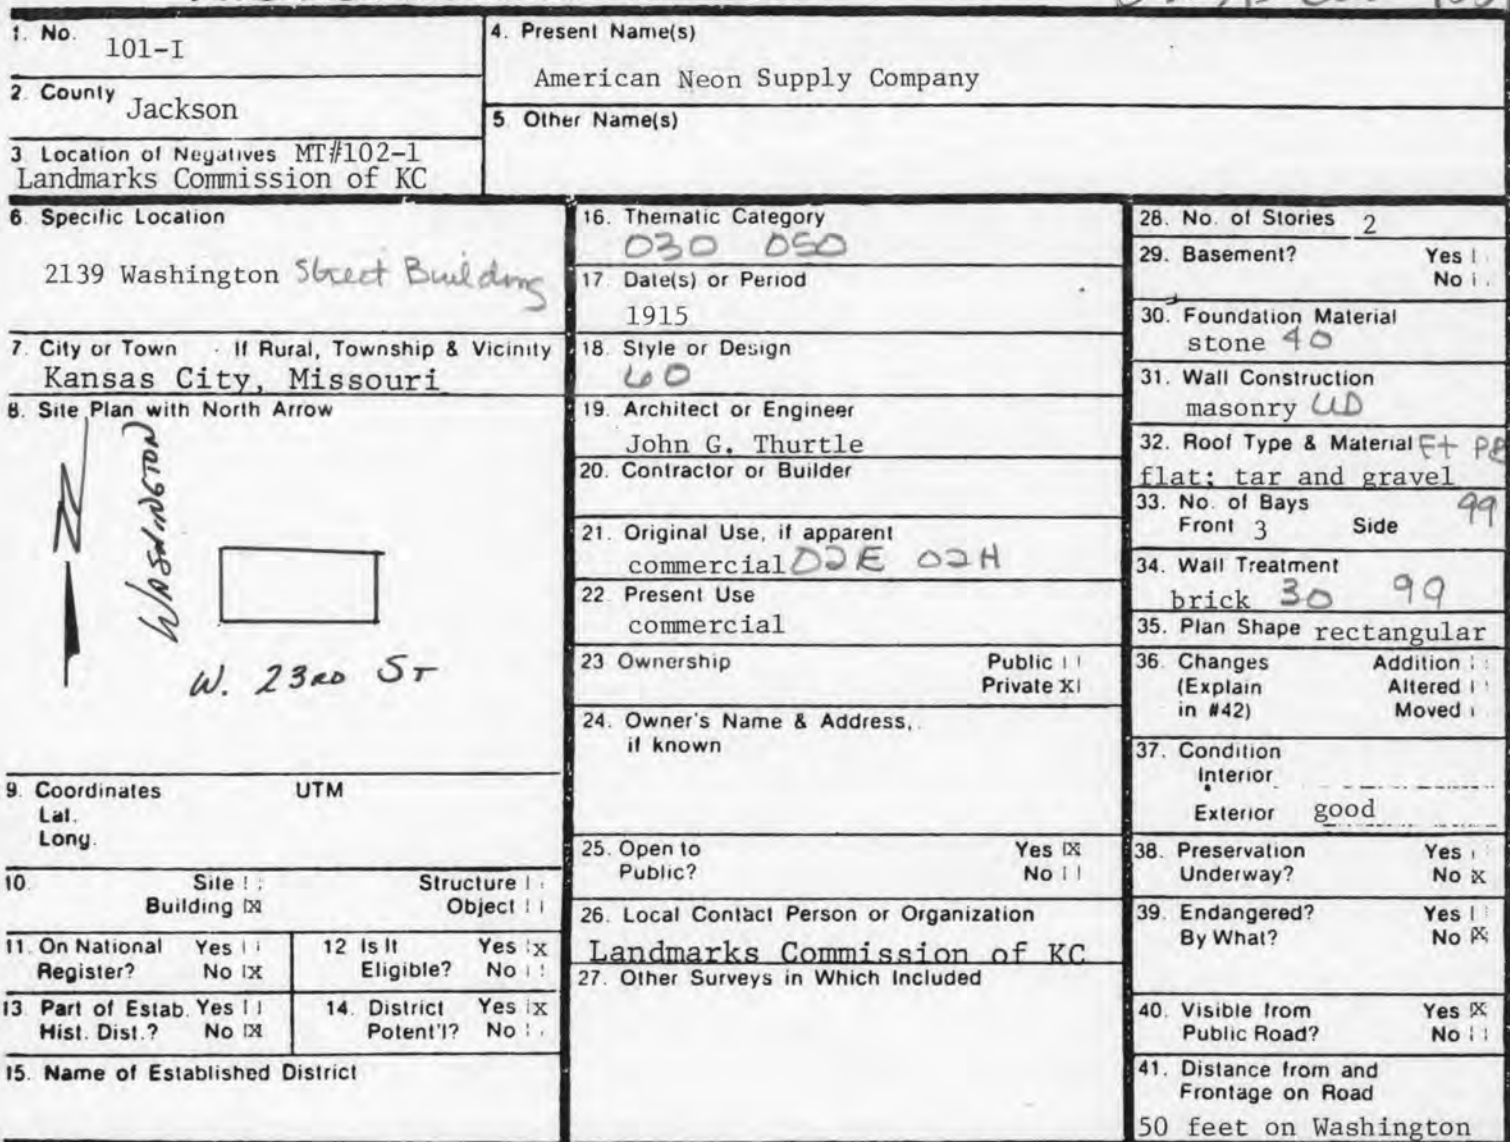 1. No.
101-I
2. County
Jackson
3 Location of Negatives MT#102-1
Landmarks Commission of KC
4. Present Name(s)
American Neon Supply Company
5 Other Name(s)
6. Specific Location
2139 Washington Street Building
7. City or Town If Rural, Township & Vicinity
Kansas City, Missouri
8. Site Plan with North Arrow
N
WASHINGTON
W. 23RD ST
9. Coordinates UTM
Lat.
Long.
10. Site Structure
Building X Object
11. On National Yes
Register? No X
12 Is It Yes X
Eligible? No
13 Part of Estab. Yes
Hist. Dist.? No X
14. District Yes X
Potent'l? No
15. Name of Established District
16. Thematic Category
030 050
17 Date(s) or Period
1915
18. Style or Design
60
19. Architect or Engineer
John G. Thurtle
20. Contractor or Builder
21. Original Use, if apparent
commercial 02E 02H
22. Present Use
commercial
23 Ownership Public
Private X
24. Owner's Name & Address,
if known
25. Open to Yes X
Public? No
26. Local Contact Person or Organization
Landmarks Commission of KC
27. Other Surveys in Which Included
28. No. of Stories 2
29. Basement? Yes
No
30. Foundation Material
stone 40
31. Wall Construction
masonry UD
32. Roof Type & Material
flat; tar and gravel
33. No. of Bays 99
Front 3 Side
34. Wall Treatment
brick 30 99
35. Plan Shape rectangular
36. Changes Addition
(Explain Altered
in #42) Moved
37. Condition
Interior
Exterior good
38. Preservation Yes
Underway? No X
39. Endangered? Yes
By What? No X
40. Visible from Yes X
Public Road? No
41. Distance from and
Frontage on Road
50 feet on Washington